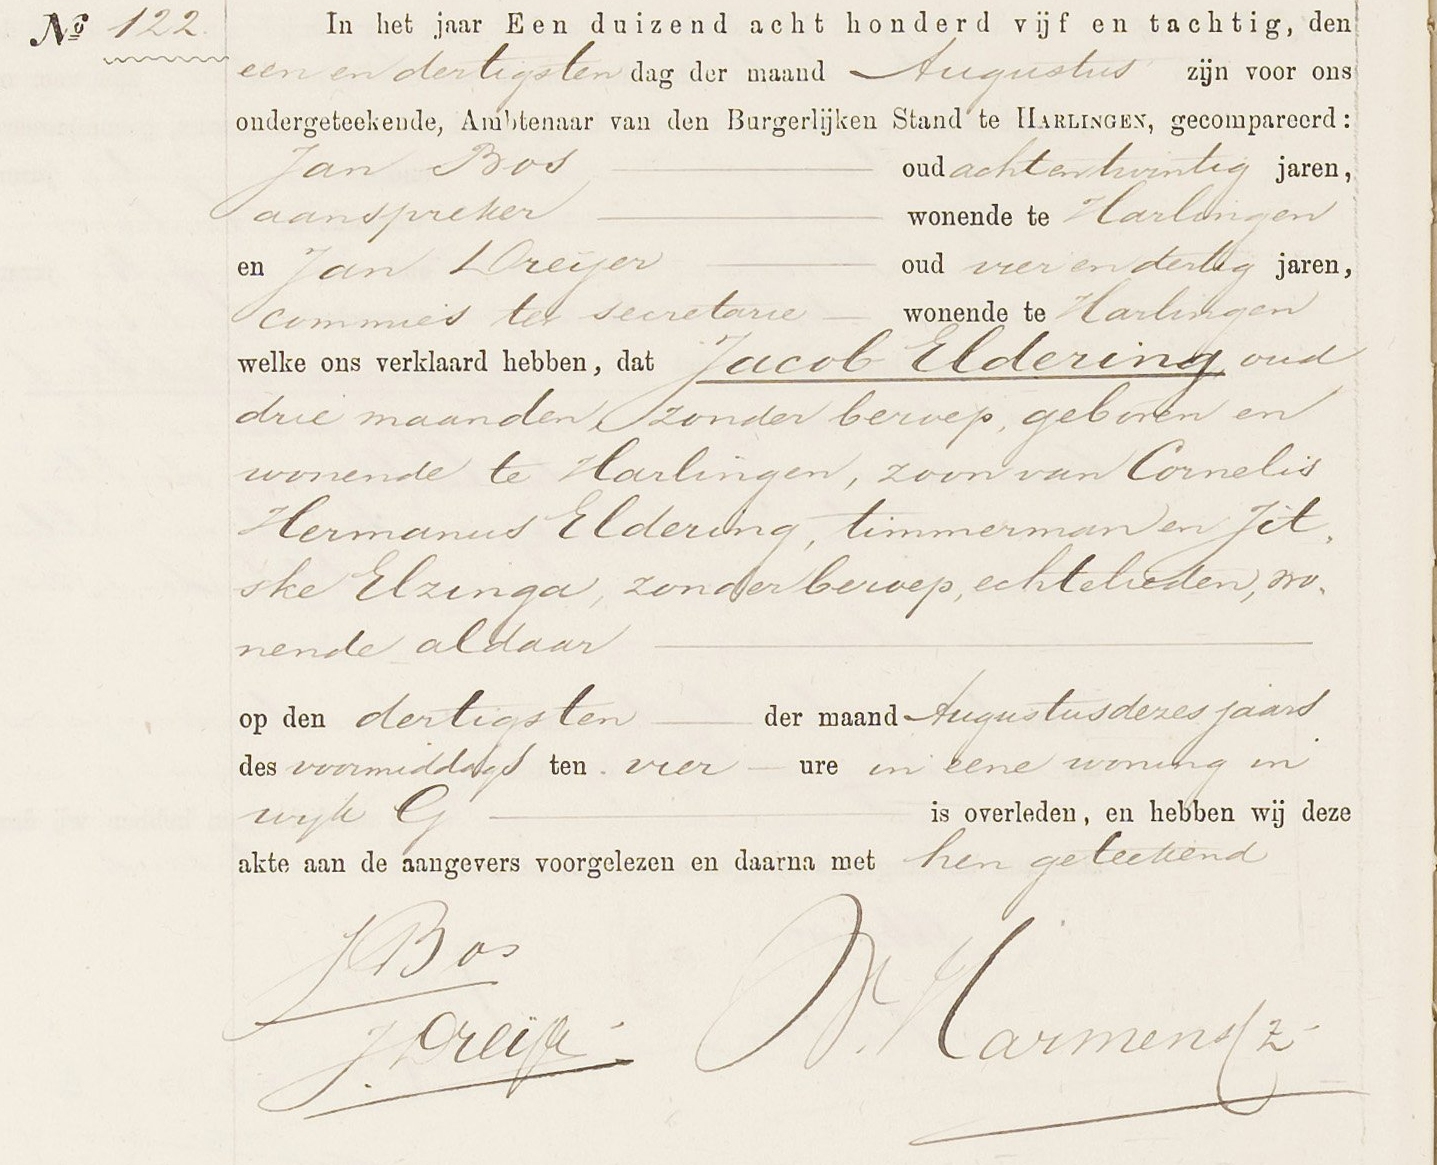 No 122.
In het jaar Een duizend acht honderd vijf en tachtig, den
een en dertigsten dag der maand Augustus zijn voor ons
ondergeteekende, Ambtenaar van den Burgerlijken Stand te HARLINGEN, gecompareerd:
Jan Bos oud achtentwintig jaren,
aanspreker wonende te Harlingen
en Jan Dreijer oud vier en dertig jaren,
commies ter secretarie wonende te Harlingen
welke ons verklaard hebben, dat Jacob Eldering, oud
drie maanden, zonder beroep, geboren en
wonende te Harlingen, zoon van Cornelis
Hermanus Eldering, timmerman en Jit-
ske Elzinga, zonder beroep, echtelieden, wo-
nende aldaar
op den dertigsten der maand Augustus dezes jaars
des voormiddags ten vier ure in eene woning in
wijk G is overleden, en hebben wij deze
akte aan de aangevers voorgelezen en daarna met hen geteekend
J Bos
J. Dreijer
Harmens Hz